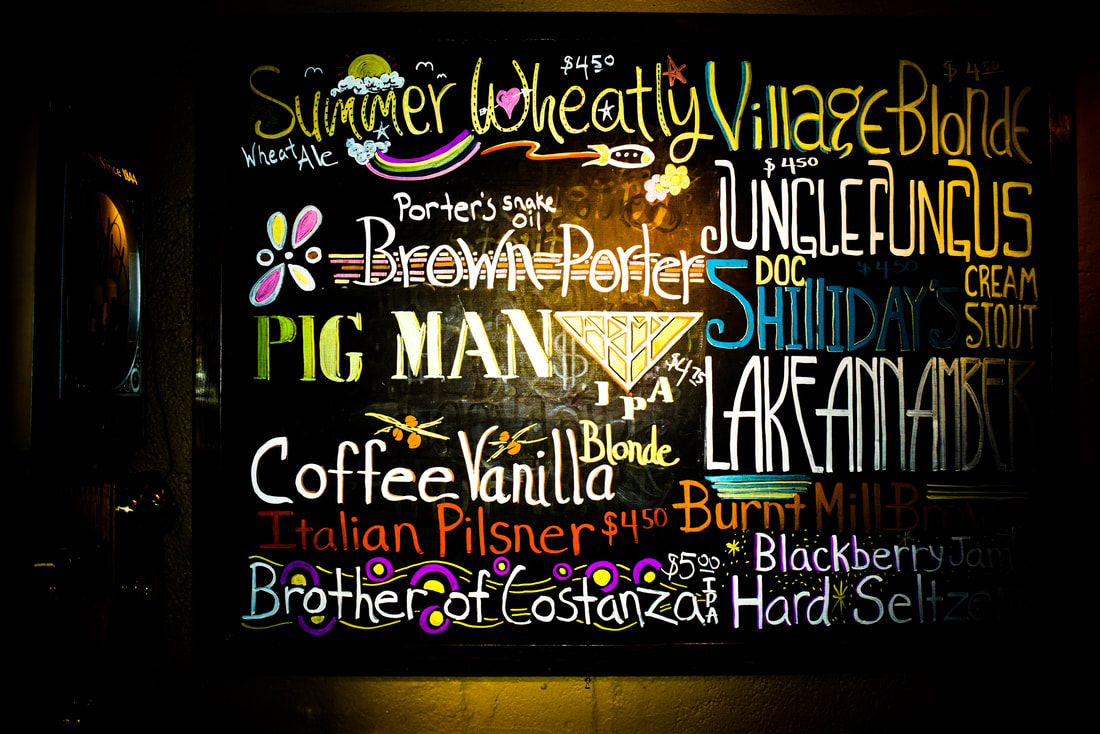 $4.50
Summer Wheatly
Wheat Ale
Porter's snake oil
Brown Porter
PIG MAN
$4.75
IPA
Coffee Vanilla Blonde
Italian Pilsner $4.50
Brother of Costanza $5.00 IPA
$4.50
Village Blonde
$4.50
JUNGLE FUNGUS
$4.50
DOC SHILLIDAY'S CREAM STOUT
LAKE ANN AMBER
Burnt Mill Brown
Blackberry Jam
Hard Seltzer
SINCE 1844